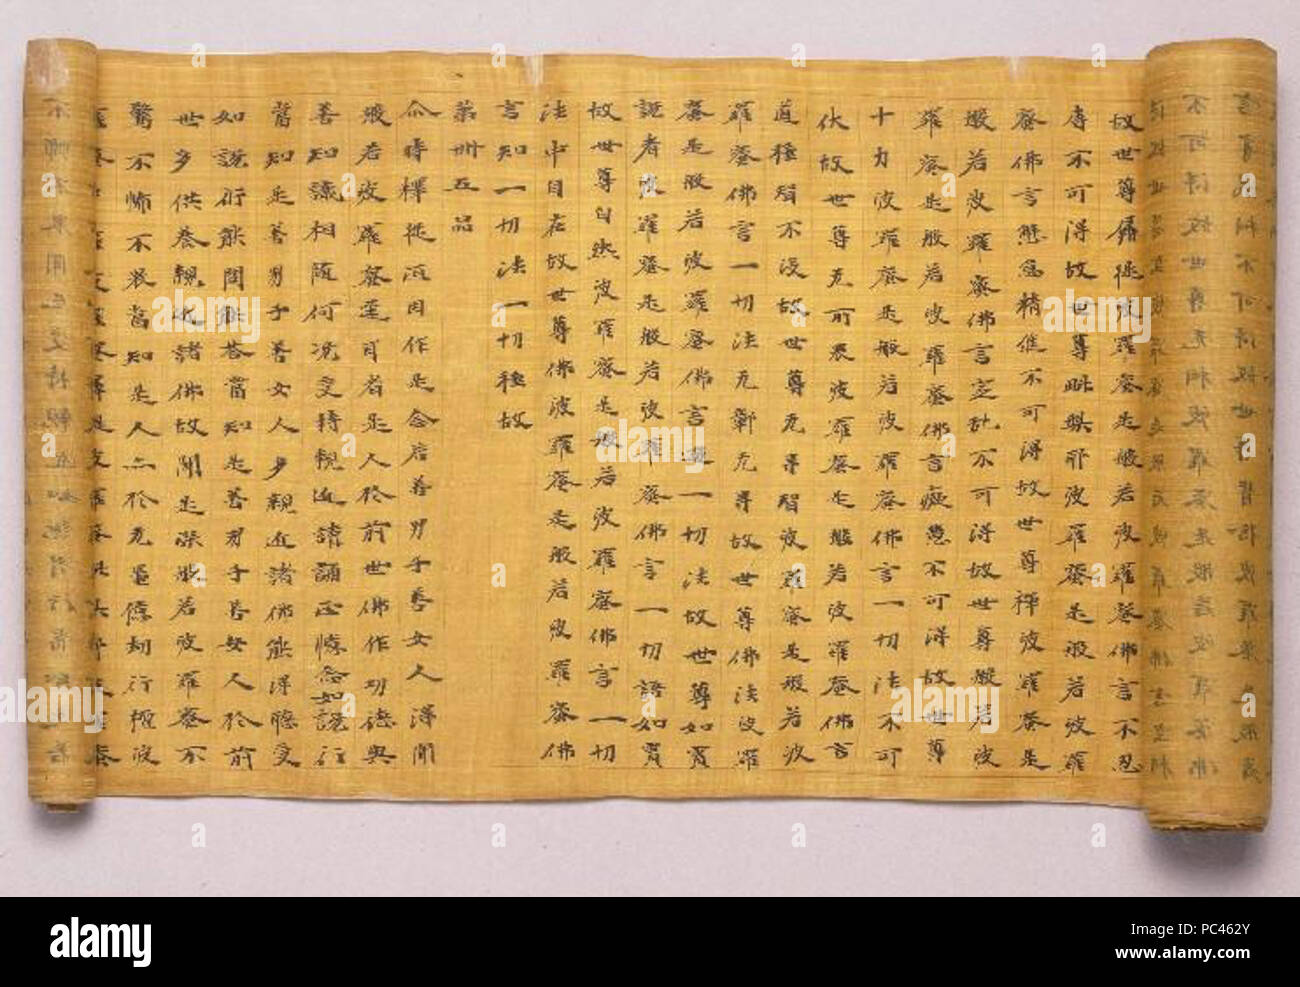 故世尊羼提波羅蜜是般若波羅蜜佛言不忍
辱不可得故世尊毗梨耶波羅蜜是般若波羅
蜜佛言懈怠精進不可得故世尊禪波羅蜜是
般若波羅蜜佛言定亂不可得故世尊般若波
羅蜜是般若波羅蜜佛言癡慧不可得故世尊
十力波羅蜜是般若波羅蜜佛言一切法不可
伏故世尊无所畏波羅蜜是般若波羅蜜佛言
道種智不沒故世尊无㝵智波羅蜜是般若波
羅蜜佛言一切法无鄣无㝵故世尊佛法波羅
蜜是般若波羅蜜佛言過一切法故世尊如實
說者波羅蜜是般若波羅蜜佛言一切語如實
故世尊自然波羅蜜是般若波羅蜜佛言一切
法中自在故世尊佛波羅蜜是般若波羅蜜佛
言知一切法一切種故
苐卌五品
尒時釋提洹因作是念若善男子善女人得聞
般若波羅蜜逕耳者是人於前世佛作功德與
善知識相隨何況受持親近讀誦正憶念如說行
當知是善男子善女人多親近諸佛能得聽受
如說行能問能答當知是善男子善女人於前
世多供養親近諸佛故聞是深般若波羅蜜不
驚不怖不畏當知是人亦於无量億劫行檀波
alamy
PC462Y
www.alamy.com